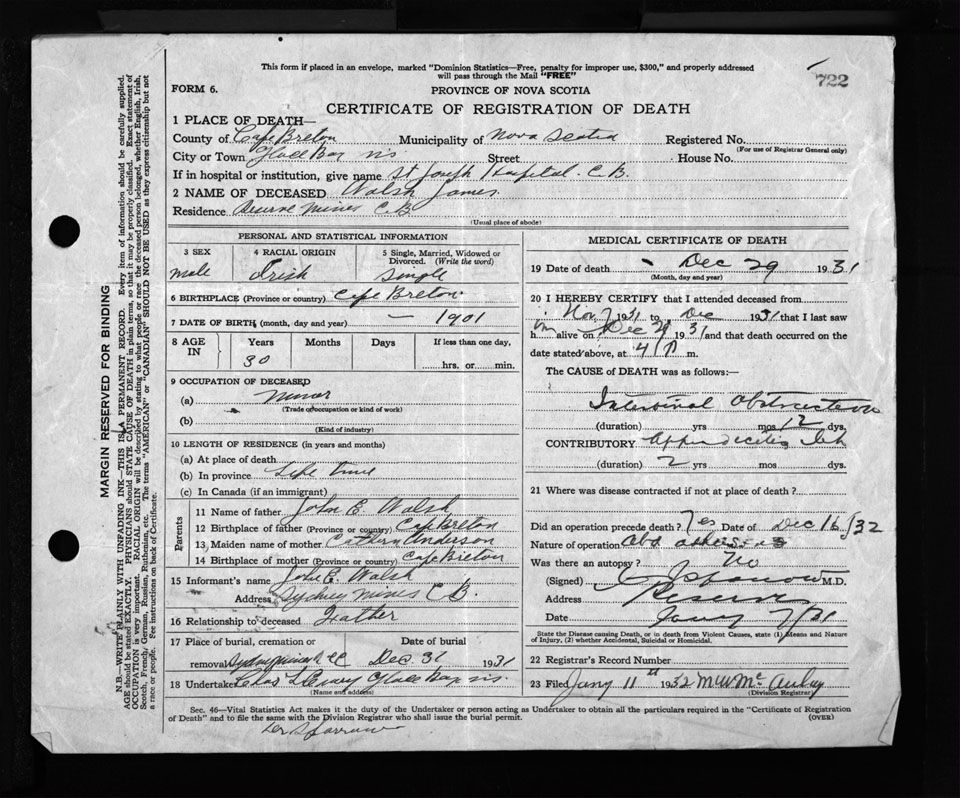 This form if placed in an envelope, marked "Dominion Statistics—Free, penalty for improper use, $300," and properly addressed
will pass through the Mail "FREE"
722
FORM 6.
PROVINCE OF NOVA SCOTIA
CERTIFICATE OF REGISTRATION OF DEATH
1 PLACE OF DEATH—
County of Cape Breton Municipality of Nova Scotia Registered No.
(For use of Registrar General only)
City or Town Glace Bay NS Street House No.
If in hospital or institution, give name St Joseph Hospital. C.B.
2 NAME OF DECEASED Walsh James.
Residence Reserve Mines C.B.
(Usual place of abode)
PERSONAL AND STATISTICAL INFORMATION
3 SEX 4 RACIAL ORIGIN 5 Single, Married, Widowed or Divorced. (Write the word)
male Irish Single
6 BIRTHPLACE (Province or country) Cape Breton
7 DATE OF BIRTH, (month, day and year) — 1901
8 AGE IN Years Months Days If less than one day,
30 hrs. or min.
9 OCCUPATION OF DECEASED
(a) Minor
(Trade or occupation or kind of work)
(b)
(Kind of industry)
10 LENGTH OF RESIDENCE (in years and months)
(a) At place of death
(b) In province Life time
(c) In Canada (if an immigrant)
Parents
11 Name of father John E. Walsh
12 Birthplace of father (Province or country) Cape Breton
13 Maiden name of mother Anderson
14 Birthplace of mother (Province or country) Cape Breton
15 Informant's name John E. Walsh
Address Sydney Mines C.B.
16 Relationship to deceased Father
17 Place of burial, cremation or removal Date of burial
Dec 31 1931
18 Undertaker Chas Glace Bay NS.
(Name and address)
MEDICAL CERTIFICATE OF DEATH
19 Date of death - Dec 29 1931
(Month, day and year)
20 I HEREBY CERTIFY that I attended deceased from
Nov 7 1931 to Dec 1931 that I last saw
h im alive on Dec 29 1931 and that death occurred on the
date stated above, at 4 P m.
The CAUSE of DEATH was as follows:—
Intestinal Obstruction
(duration) yrs mos 12 dys.
CONTRIBUTORY Appendicitis
(duration) 2 yrs mos dys.
21 Where was disease contracted if not at place of death?
Did an operation precede death? Yes Date of Dec 16/32
Nature of operation abd
Was there an autopsy? No
(Signed) M.D.
Address Reserve
Date Jany 7/31
State the Disease causing Death, or in death from Violent Causes, state (1) Means and Nature
of Injury, (2) whether Accidental, Suicidal or Homicidal.
22 Registrar's Record Number
23 Filed Jany 11th 1932 M W McAulay
(Division Registrar)
Sec. 46—Vital Statistics Act makes it the duty of the Undertaker or person acting as Undertaker to obtain all the particulars required in the "Certificate of Registration
of Death" and to file the same with the Division Registrar who shall issue the burial permit.
(OVER)
MARGIN RESERVED FOR BINDING
N.B.—WRITE PLAINLY WITH UNFADING INK—THIS IS A PERMANENT RECORD. Every item of information should be carefully supplied.
AGE should be stated EXACTLY. PHYSICIANS should STATE CAUSE OF DEATH in plain terms, so that it may be properly classified. Exact statement of
OCCUPATION is very important. RACIAL ORIGIN will be described by stating to what people or race the deceased person belonged, whether English, Irish,
Scotch, French, German, Russian, Ruthenian, etc. The terms "AMERICAN" or "CANADIAN" SHOULD NOT BE USED as they express citizenship but not
a race or people. See instructions on back of Certificate.